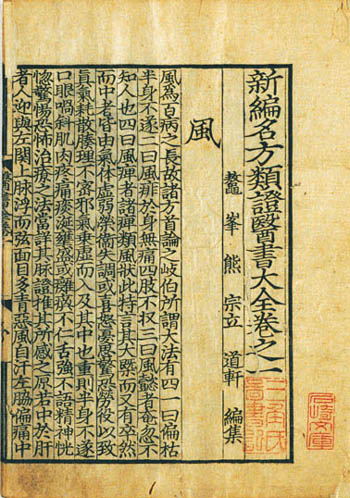 新編名方類證醫書大全卷之一
鰲峯熊宗立道軒編集
風
風爲百病之長故諸方首論之岐伯所謂大法有四一曰偏枯
半身不遂二曰風痱於身無痛四肢不収三曰風懿者奄忽不
知人也四曰風痺者諸痺類風狀此特言其大槩而又有卒然
而中者皆由氣体虚弱榮衛失調或喜怒憂思驚恐勞役以致
眞氣耗散腠理不宻邪氣乗虚而入及其中也重則半身不遂
口眼喎斜肌肉疼痛痰涎壅盛或癱瘓不仁舌強不語精神恍
惚驚惕恐怖治療之法當詳其脉證推其所感之原若中於肝
者人迎與左關上脉浮而弦面目多青惡風自汗左脇偏痛中